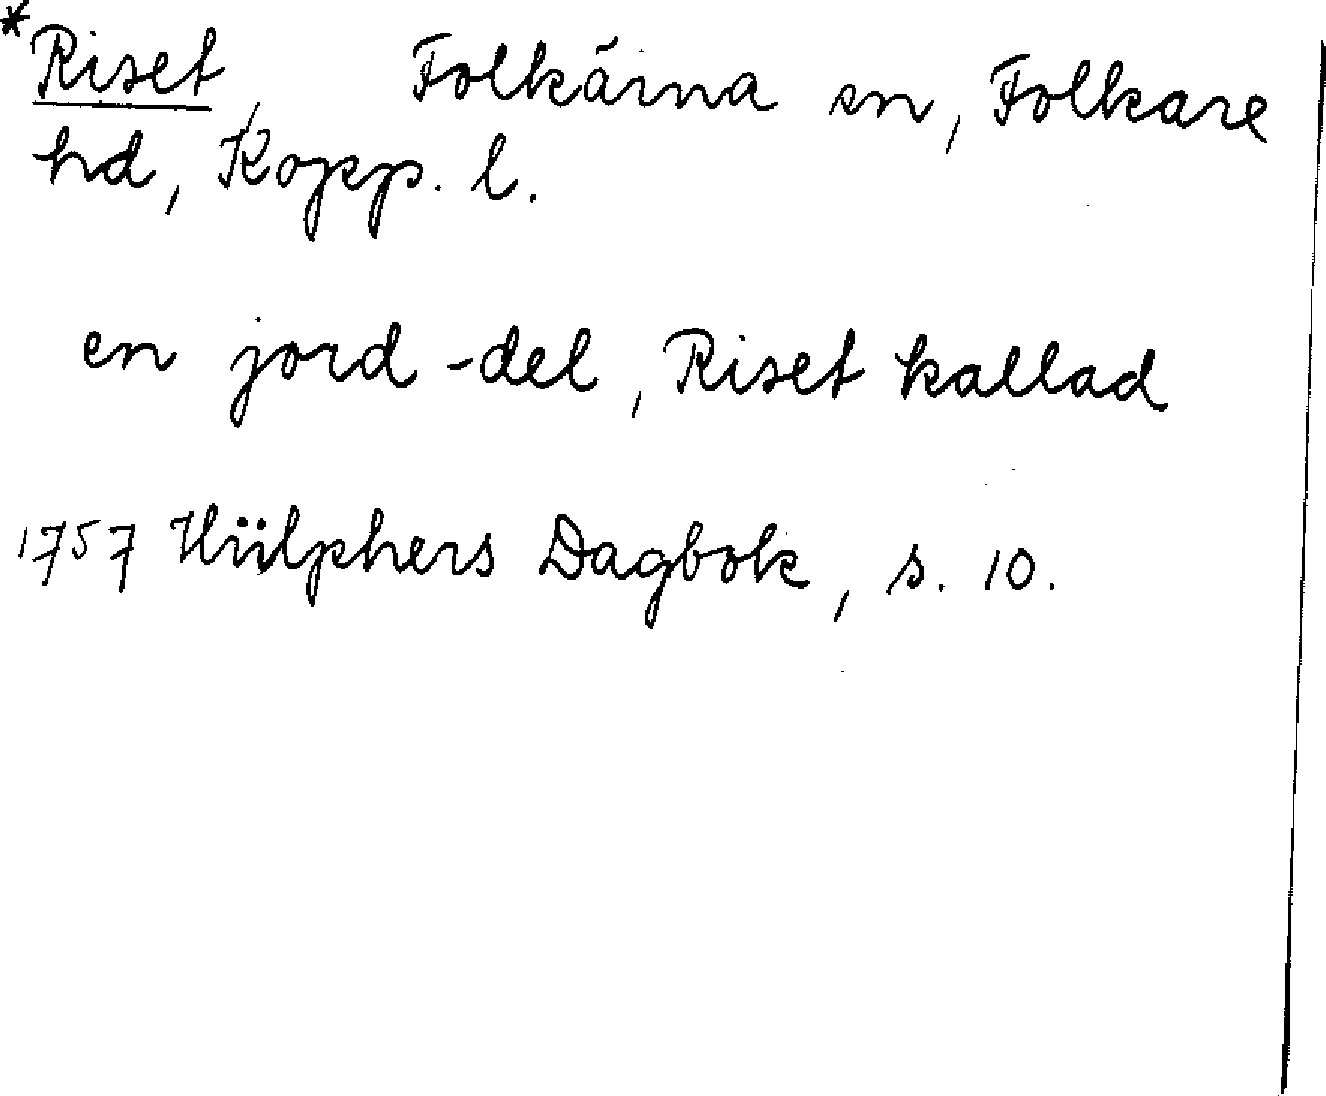 *Riset, Folkärna sn, Folkare
hd, Kopp. l.
en jord-del, Riset kallad
1757 Hülphers Dagbok, s. 10.